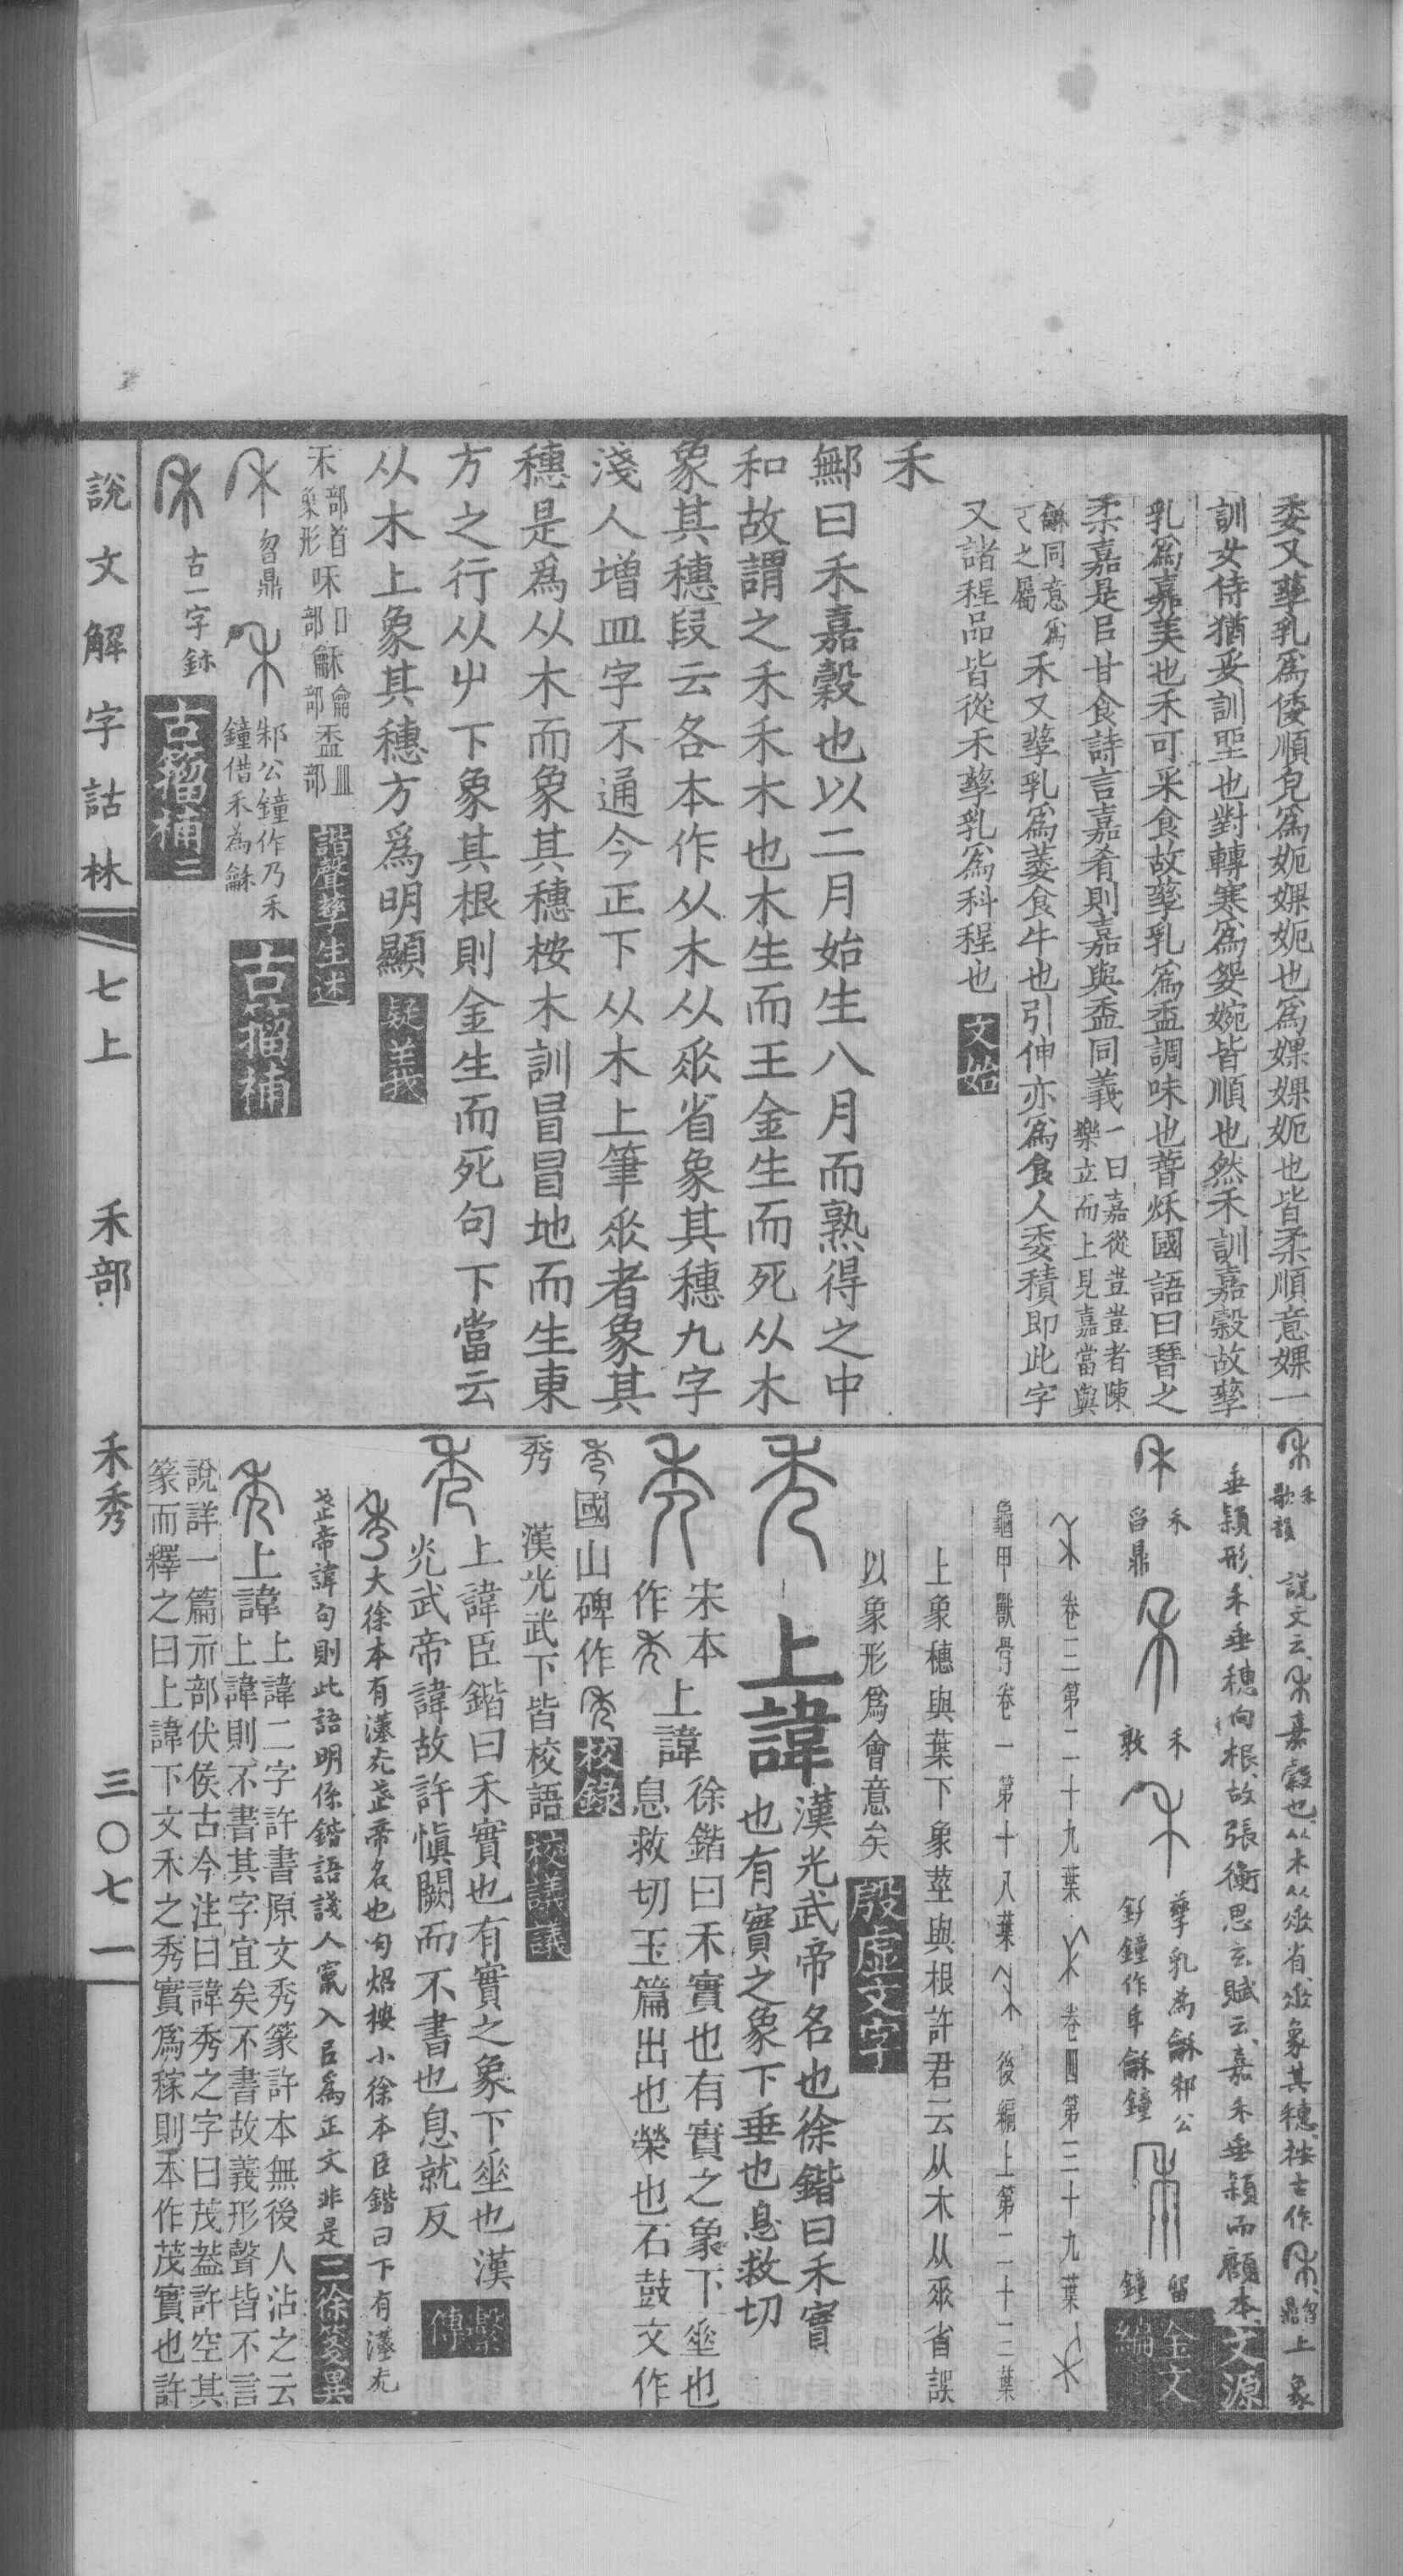 委又孳乳爲倭順皃爲㛂婐㛂也爲婐婐㛂也皆柔順意婐一
訓女侍猶妥訓坐也對轉寒爲婉皆順也然禾訓嘉穀故孳
乳爲嘉美也禾可采食故孳乳爲盉調味也國語曰之
柔嘉是㠯甘食詩言嘉肴則嘉與盉同義一曰嘉從豈豈者陳
樂立而上見嘉當與
龢同意爲
之屬禾又孳乳爲萎食牛也引伸亦爲食人委積即此字
又諸程品皆從禾孳乳爲科程也文始
禾
鄦曰禾嘉穀也以二月始生八月而熟得之中
和故謂之禾禾木也木生而王金生而死从木
象其穗段云各本作从木从𠂹省象其穗九字
淺人增四字不通今正下从木上筆𠂹者象其
穗是爲从木而象其穗桉木訓冒冒地而生東
方之行从屮下象其根則金生而死句下當云
从木上象其穗方爲明顯疑義
禾部首象形咊口部龢龠部盉皿部諧聲孳生述
曶鼎 邾公鐘作乃禾鐘借禾為龢古籀補
古一字鉥古籀補二
禾歌韻 說文云嘉穀也从木从𠂹省𠂹象其穗按古作曶鼎上象
垂穎形禾垂穗向根故張衡思玄賦云嘉禾垂穎而顧本文源
禾曶鼎 禾敦 孳乳為龢邾公釛鐘作年龢鐘 留鐘金文編
卷三第二十九葉 卷四第三十九葉
龜甲獸骨卷一第十八葉 後編上第二十二葉
上象穗與葉下象莖與根許君云从木从𠂹省誤
以象形爲會意矣殷虛文字
上諱漢光武帝名也徐鍇曰禾實
也有實之象下垂也息救切
宋本作 上諱徐鍇曰禾實也有實之象下𡍮也
息救切玉篇出也榮也石鼓文作
國山碑作校錄
秀 漢光武下皆校語校議議
上諱臣鍇曰禾實也有實之象下𡍮也漢
光武帝諱故許愼闕而不書也息就反繫傳
大徐本有漢光武帝名也句炤按小徐本臣鍇曰下有漢光
武帝諱句則此語明係鍇語淺人竄入㠯為正文非是二徐箋異
上諱上諱二字許書原文秀篆許本無後人沾之云
上諱則不書其字宜矣不書故義形聲皆不言
說詳一篇示部伏侯古今注曰諱秀之字曰茂葢許空其
篆而釋之曰上諱下文禾之秀實爲稼則本作茂實也許
說文解字詁林 七上 禾部 禾秀 三〇七一